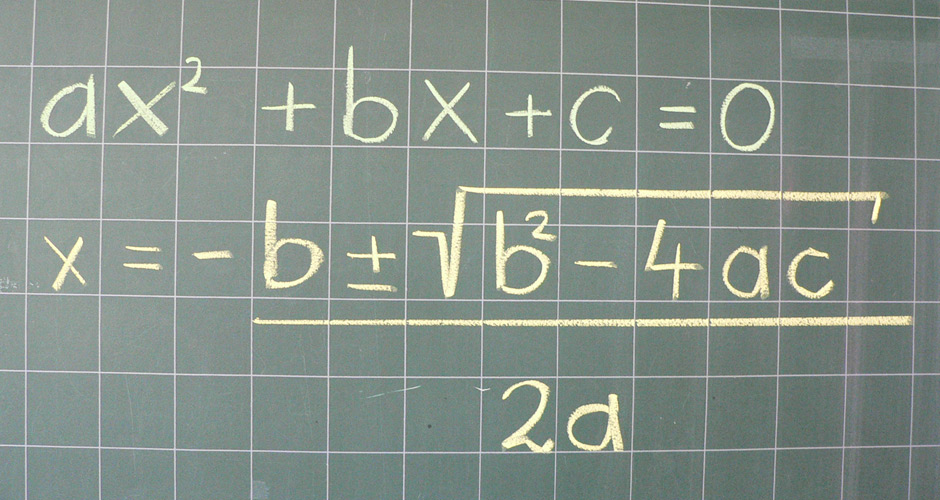 ax² + bx + c = 0
x = - b ± √b² - 4ac
2a